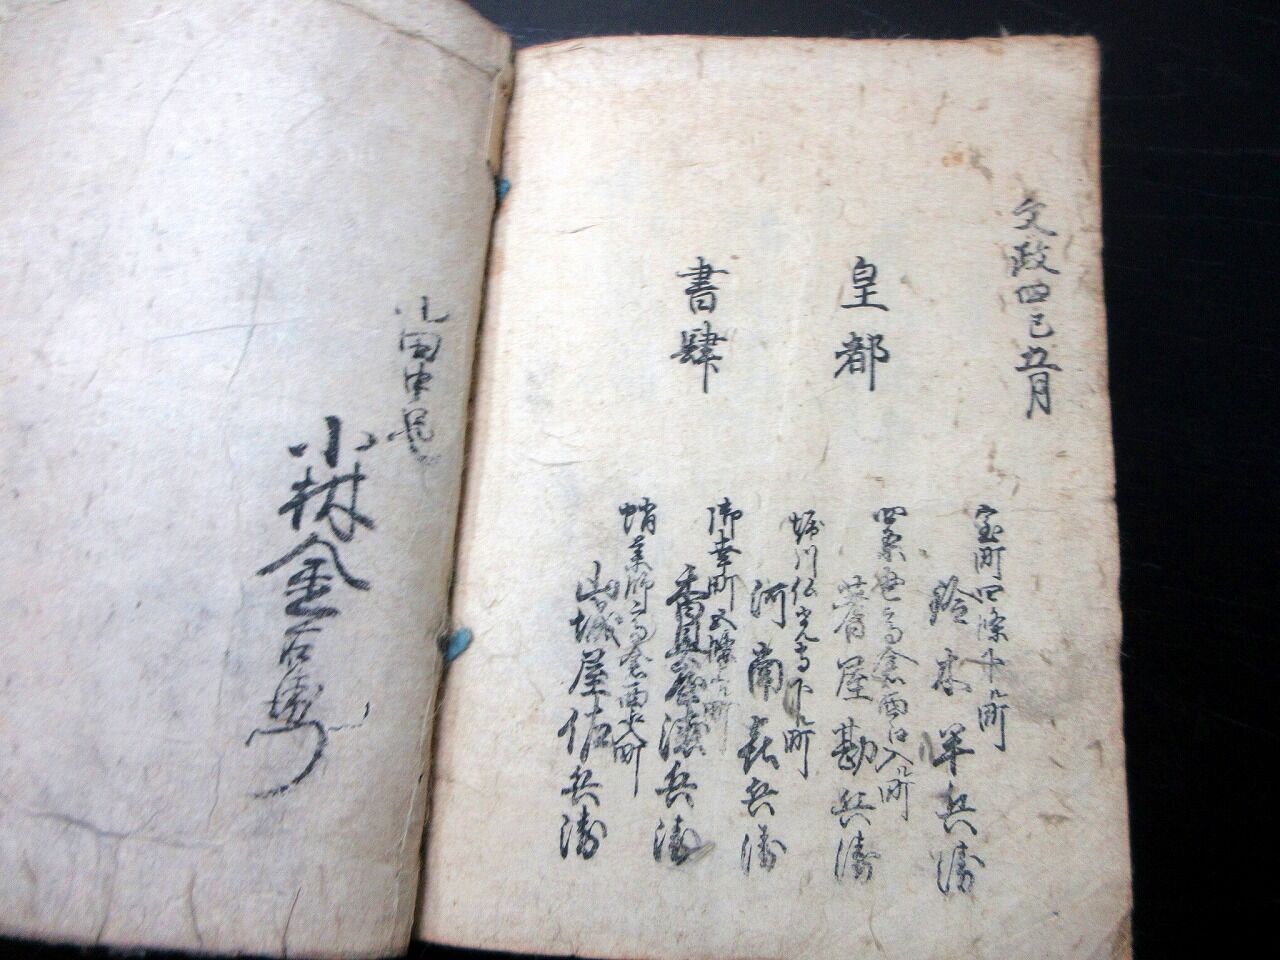 文政四巳五月
皇都
書肆
室町四條下ル町
鈴木半兵衛
四条
高倉西江入ル町
屋勘兵衛
堀川仏光寺下ル町
河南喜兵衛
御幸町
香具屋
兵衛
蛸薬師高倉西
町
山城屋佐兵衛
小田中
小林金右衛